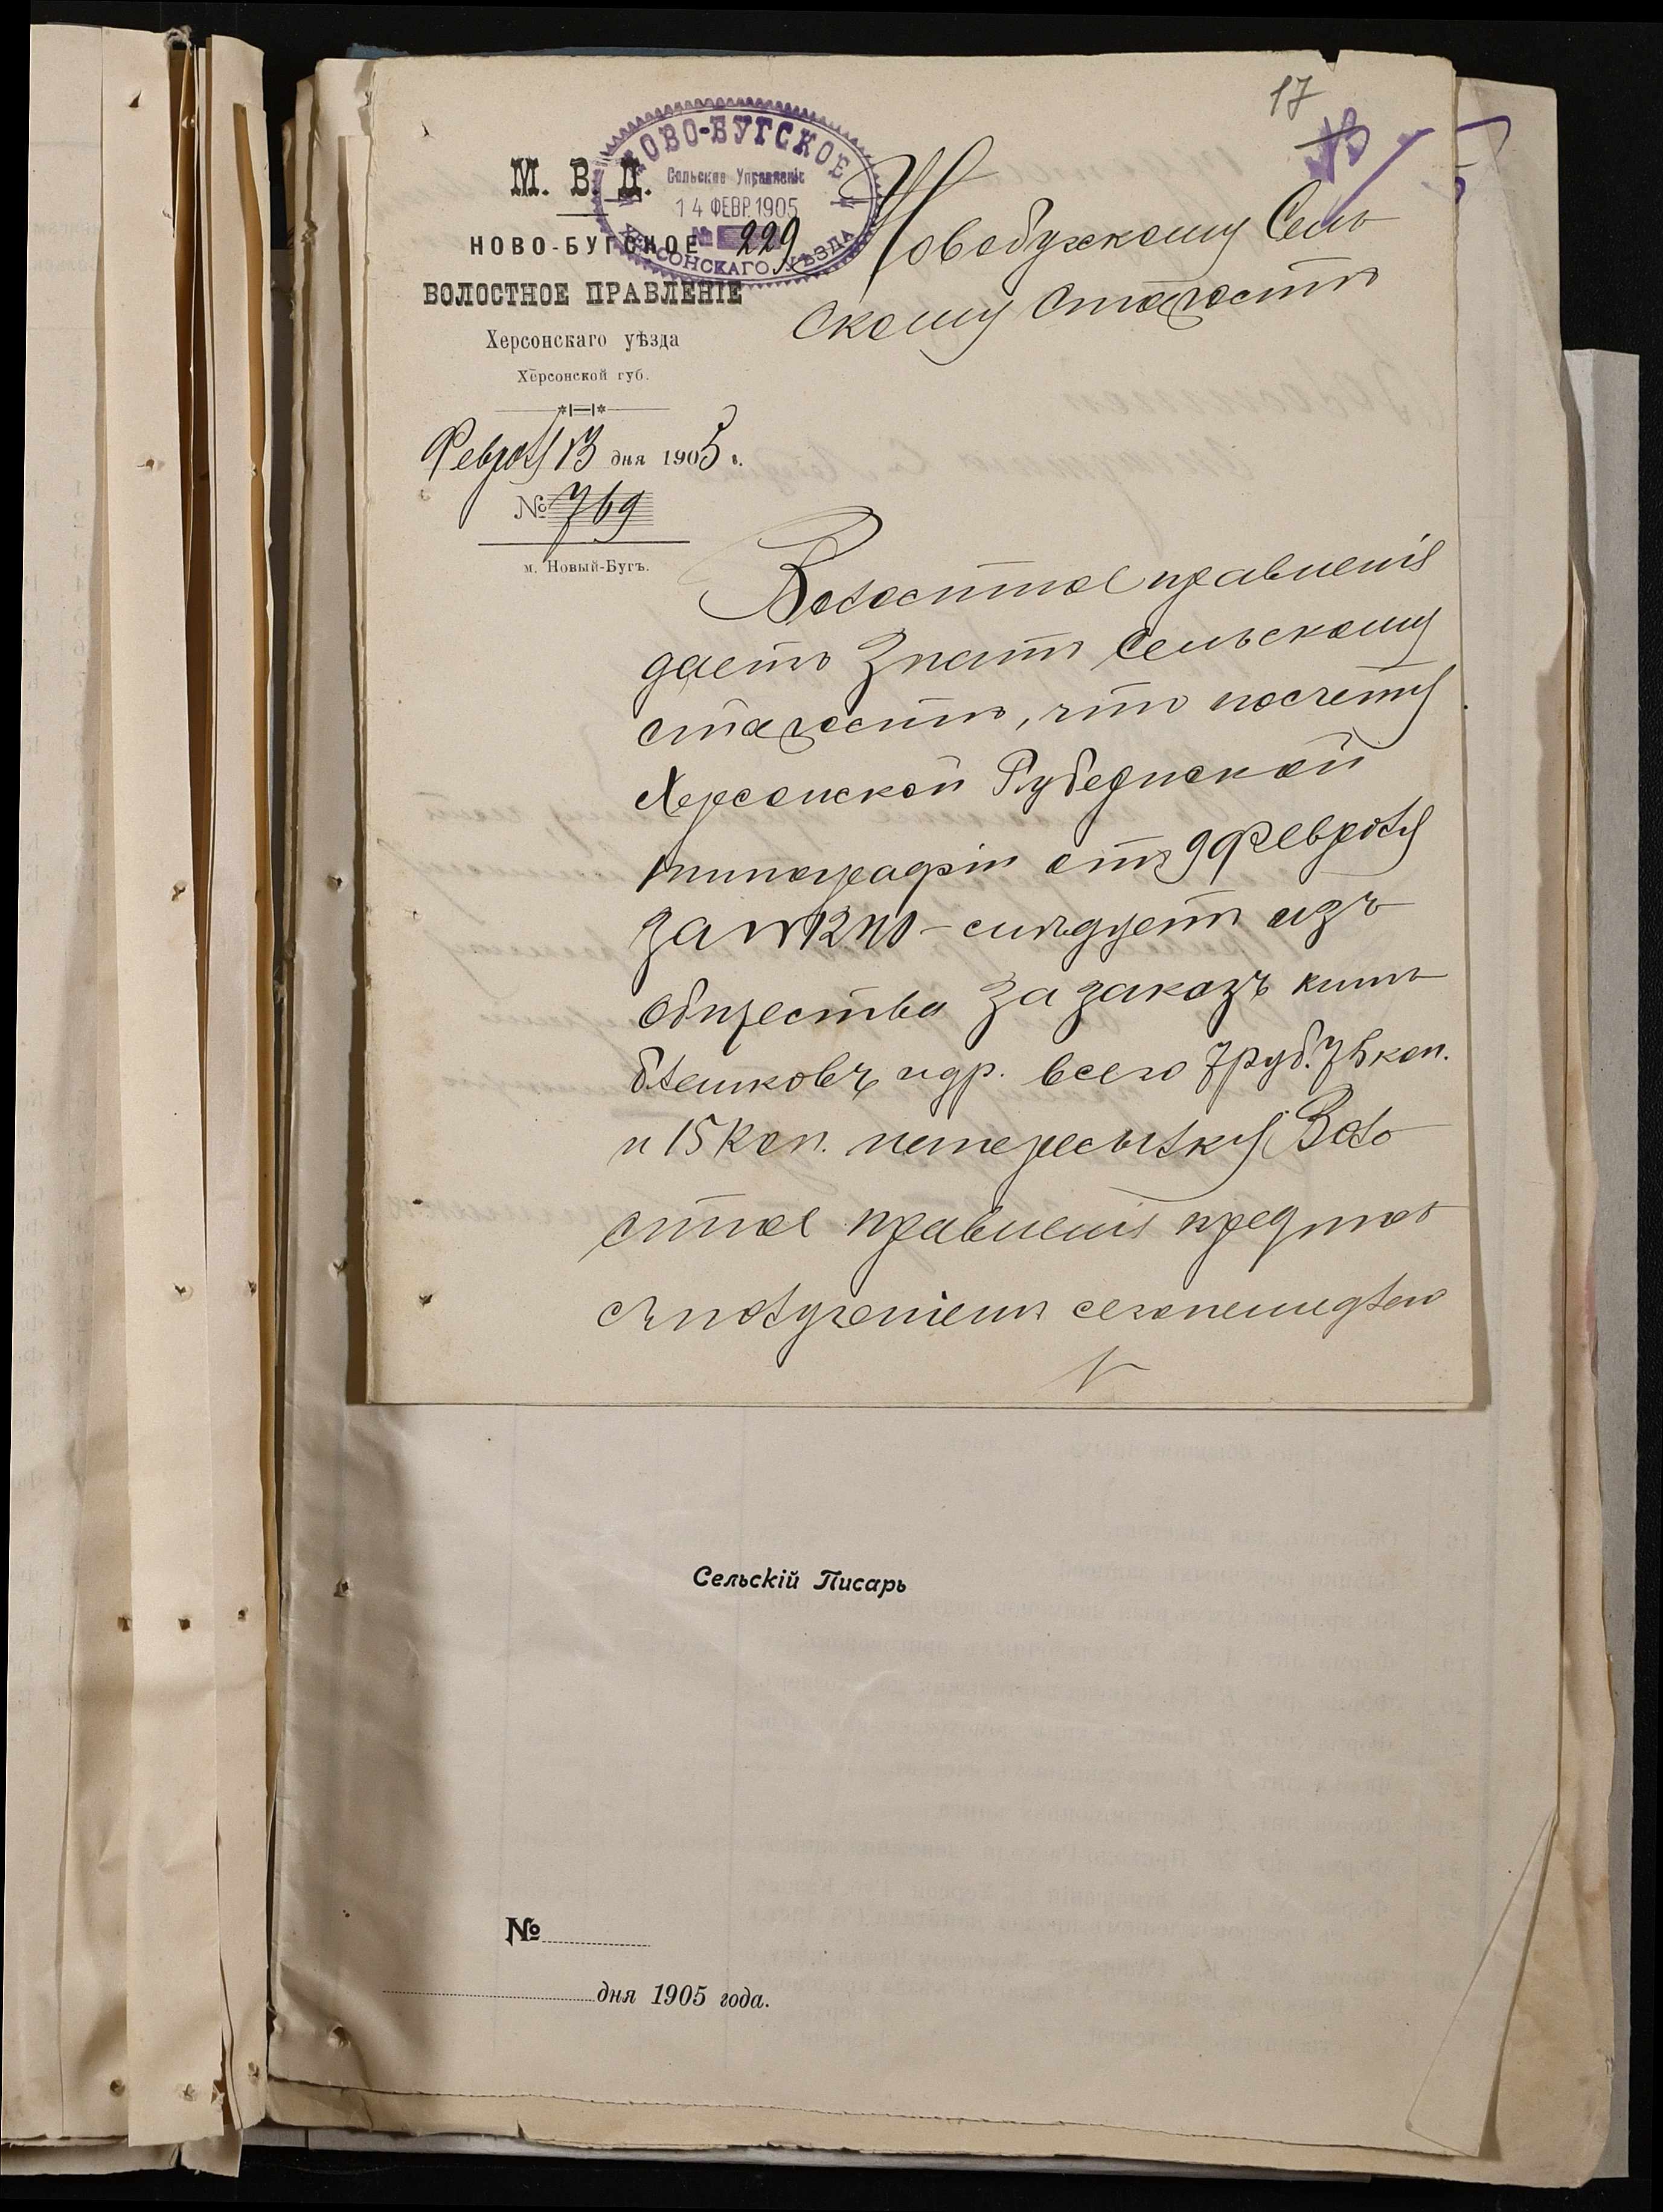 17
13
НОВО-БУГСКОЕ
Сельское Управленіе
14 ФЕВР. 1905
№ 229
ХЕРСОНСКАГО УѢЗДА
М. В. Д.
НОВО-БУГСКОЕ
ВОЛОСТНОЕ ПРАВЛЕНІЕ
Херсонскаго уѣзда
Херсонской губ.
Февраля 13 дня 1905 г.
№ 769
м. Новый-Бугъ.
Новобугскому Сель
скому Старостѣ
Волостное правленіе
даетъ знать Сельскому
старостѣ, что по счету
Херсонской Губернской
типографіи отъ 9 Февраля
за № 1240 – слѣдуетъ изъ
общества за заказъ книгъ
бланковъ и др. всего 7 руб. 76 коп.
и 15 коп. на пересылку Воло
стное правленіе предпис
съ полученіемъ сего немедлено
Сельскій Писарь
№
дня 1905 года.